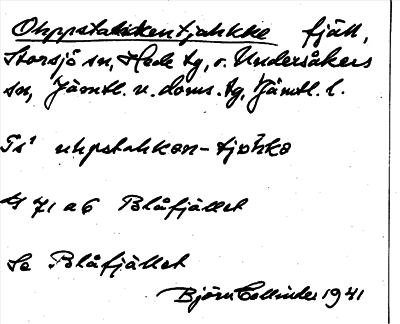 Ohppstakkentjahkke fjäll,
Storsjö sn, Hede tg, o. Undersåkers
sn, Jämtl. v. doms. tg, Jämtl. l.
uhpstahkən-tjɒhkə
71 a 6 Blåfjället
Se Blåfjället
Björn Collinder 1941